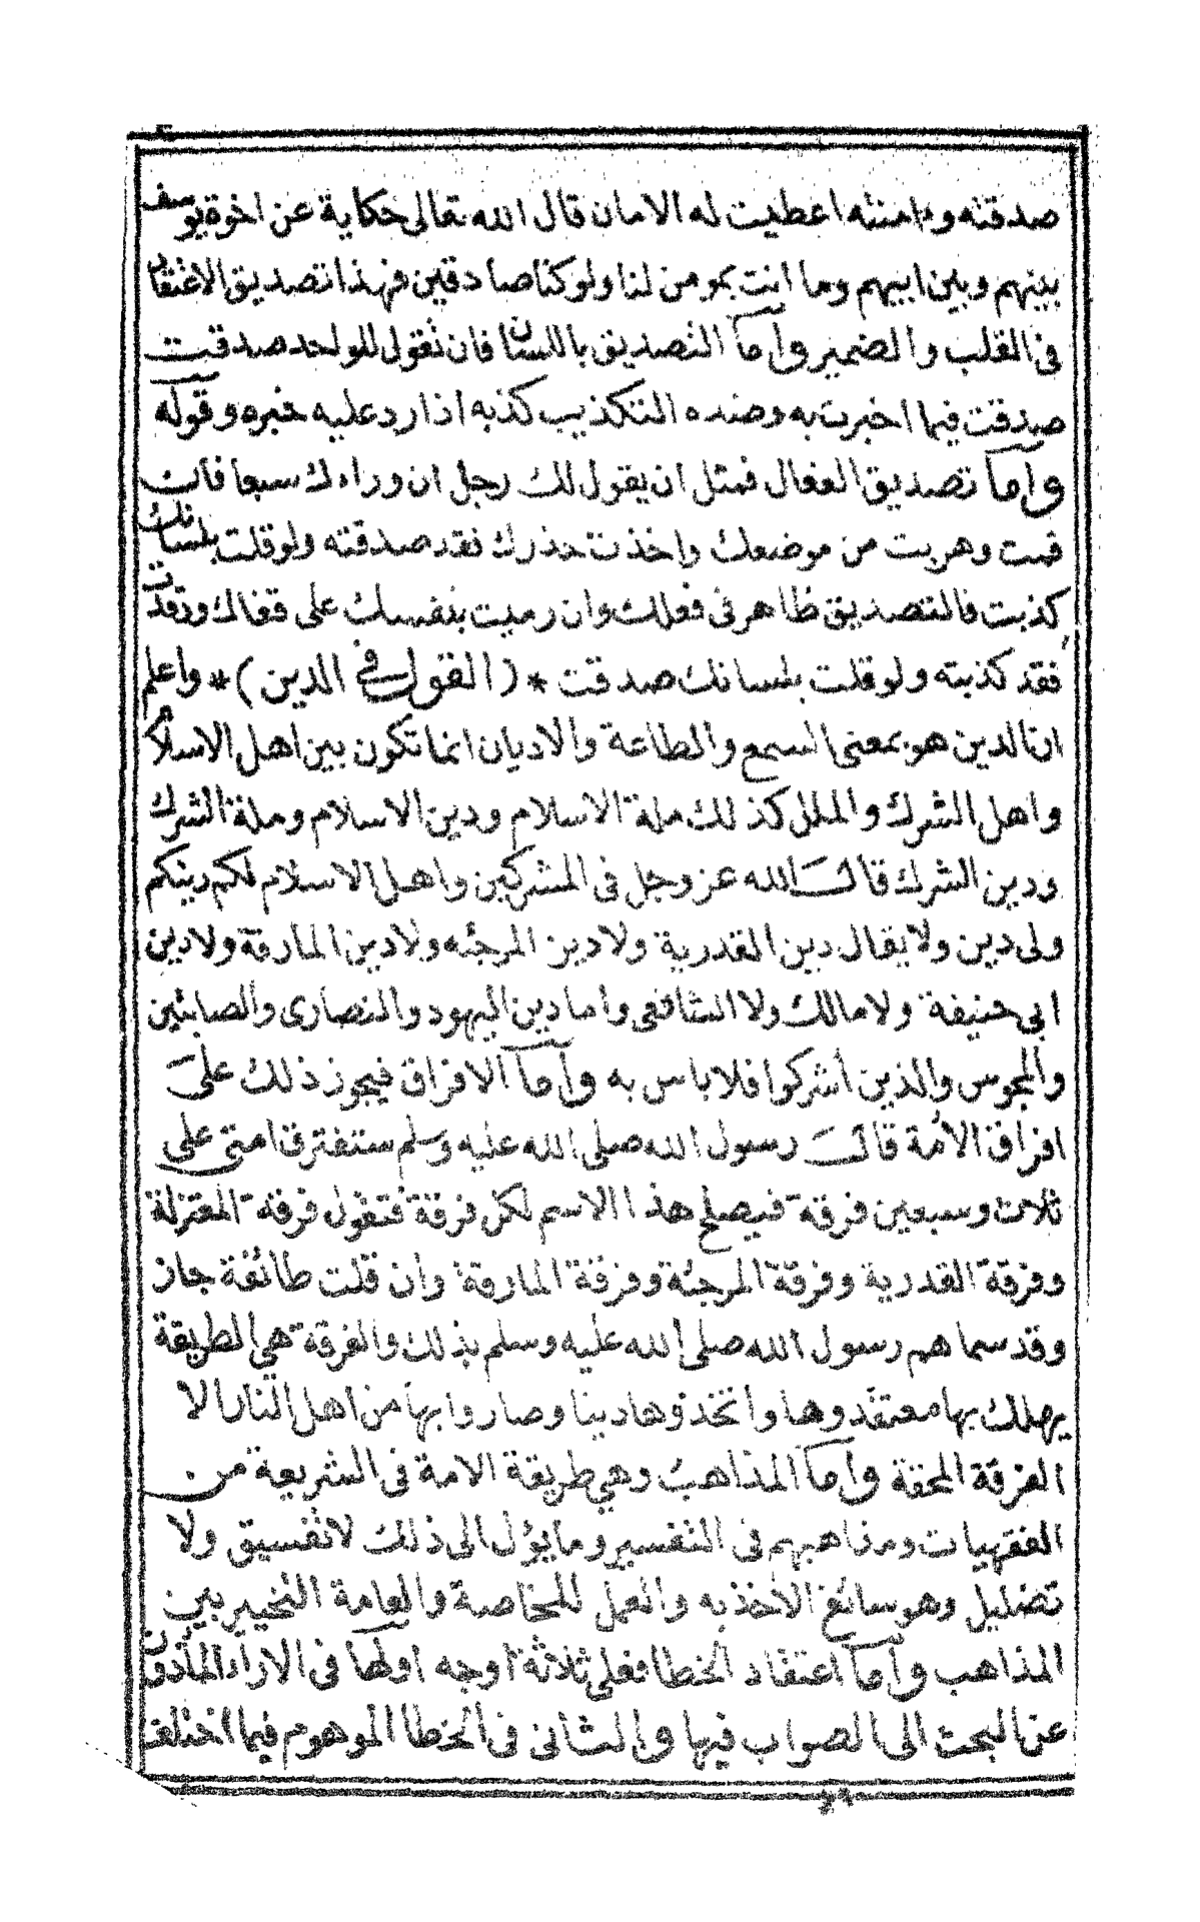 صدقته وامنته اعطيت له الامان قال الله تعالى حكاية عن اخوة يوسف
بينهم وبين ابيهم وما انت بمومن لنا ولوكنا صادقين فهذا تصديق الاعتقاد
فى القلب والضمير واما التصديق باللسان فان تقول للواحد صدقت
صدقت فيما اخبرت به وضده التكذيب كذبه اذا رد عليه خبره وقوله
واما تصديق الفعال فمثل ان يقول لك رجل ان وراءك سبعا فان
قمت وهربت من موضعك واخذت حذرك فقد صدقته ولو قلت بلسانك
كذبت فالتصديق ظاهر فى فعلك وان رميت بنفسك على قفاك ورقدت
فقد كذبته ولو قلت بلسانك صدقت * (القول في الدين) * واعلم
ان الدين هو بمعنى السمع والطاعة والاديان انما تكون بين اهل الاسلام
واهل الشرك والملل كذلك ملة الاسلام ودين الاسلام وملة الشرك
ودين الشرك قال الله عز وجل فى المشركين واهل الاسلام لكم دينكم
ولى دين ولا يقال دين القدرية ولا دين المرجئه ولا دين المارقة ولا دين
ابي حنيفة ولا مالك ولا الشافعى واما دين اليهود والنصارى والصابئين
والمجوس والذين أشركوا فلا باس به واما الافراق فيجوز ذلك على
افراق الأمة قال رسول الله صلى الله عليه وسلم ستفترق امتى على
ثلاث وسبعين فرقة فيصلح هذا الاسم لكل فرقة فتقول فرقة المعتزلة
وفرقة القدرية وفرقة المرجئة وفرقة المارقة وان قلت طائفة جاز
وقد سما هم رسول الله صلى الله عليه وسلم بذلك والفرقة هي الطريقة
يهلك بها معتقدوها واتخذوها دينا وصاروا بها من اهل النار الا
الفرقة المحقة واما المذاهب وهي طريقة الامة فى الشريعة من
الفقهيات ومذاهبهم فى التفسير وما يؤل الى ذلك لا تفسيق ولا
تضليل وهو سائغ الأخذ به والعمل للخاصة والعامة التخيير بين
المذاهب واما اعتقاد الخطا فعلى ثلاثة اوجه اولها فى الاراء المأذون
عن البحث الى الصواب فيها والثانى فى الخطا الموهوم فيما اختلف